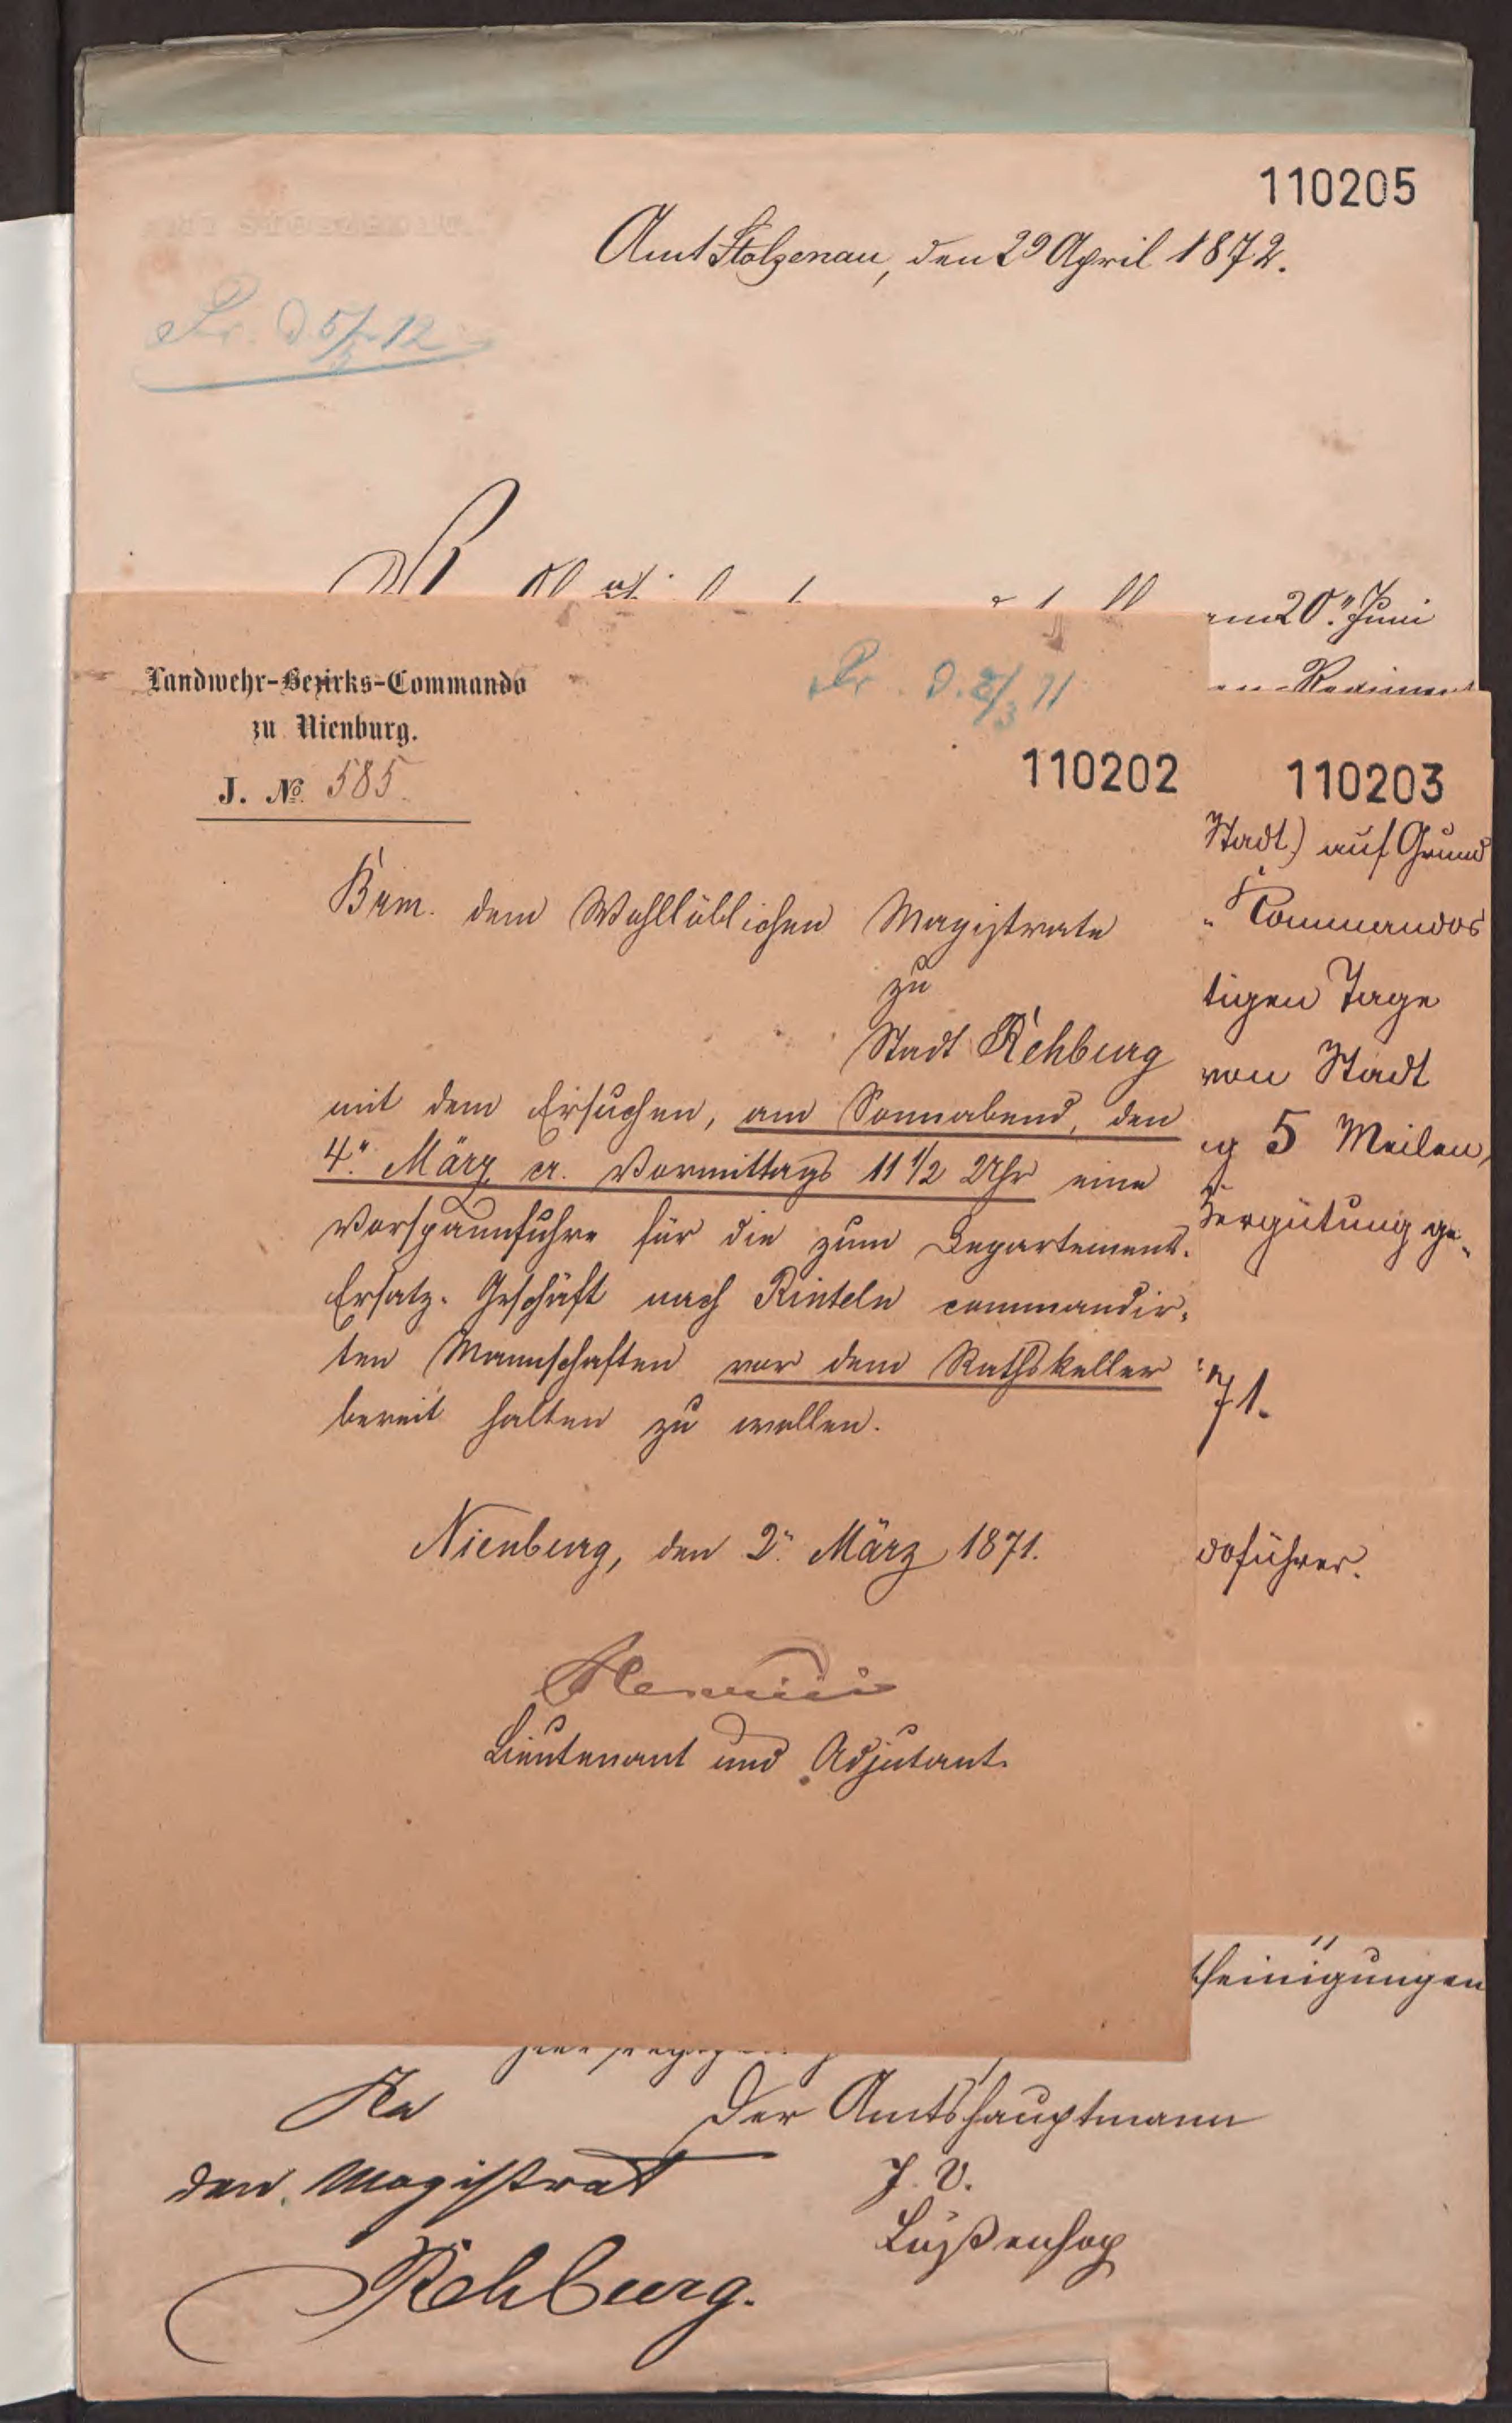 110205
Amt Stolzenau, den 29 April 1872.
Pr. d. 5/5 72
am 20." Juni
Landwehr-Bezirks-Commando
zu Nienburg.
J. No. 585.
Pr. d. 2/3 71
110202
Brm. dem Wohllöblichen Magistrate
zu
Stadt Rehburg
mit dem Ersuchen, am Sonnabend, den
4." März cr. Vormittags 11 1/2 Uhr eine
Vorspannfuhre für die zum Departements-
Ersatz-Geschäft nach Rinteln commandir-
ten Mannschaften vor dem Rathskeller
bereit halten zu wollen.
Nienburg, den 2." März 1871.
Lieutenant und Adjutant.
110203
Stadt) auf Grund
Commandos
tigen Tage
von Stadt
ig 5 Meilen,
Vergütung ge-
71.
doführer.
scheinigungen
An
den Magistrat
Rehburg.
Der Amtshauptmann
J. V.